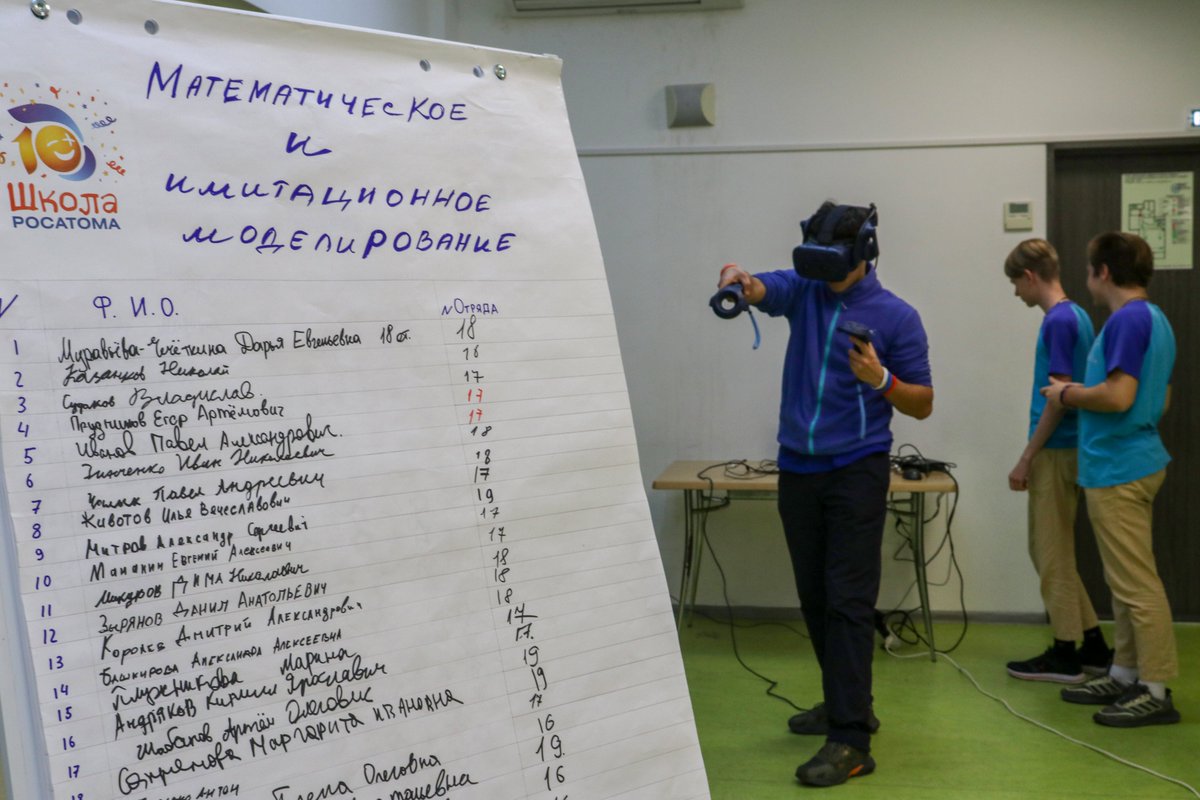 Математическое
и
имитационное
моделирование
10
Школа
РОСАТОМА
Ф. И. О.
№ Отряда
1 Муравьёва-Чечёткина Дарья Евгеньевна 18 от. 18
2 Казанков Николай 16
3 Владислав. 17
4 Прудников Егор Артёмович 17
5 Иванов Павел Александрович. 17
6 Зинченко Иван Николаевич 18
7 Павел Андреевич 18
8 Животов Илья Вячеславович 17
9 Митров Александр Сергеевич 19
10 Мананин Евгений Алексеевич 17
11 Дима Николаевич 17
12 Зырянов Данил Анатольевич 18
13 Королев Дмитрий Александрович 18
14 Башкирова Александра Алексеевна 18
15 Плужникова Марина 17
16 Андряков Кирилл Ярославич 17.
17 Артём Олегович 19
18 Маргарита Ивановна 19
Антон 17
Олеговна 16
19.
16